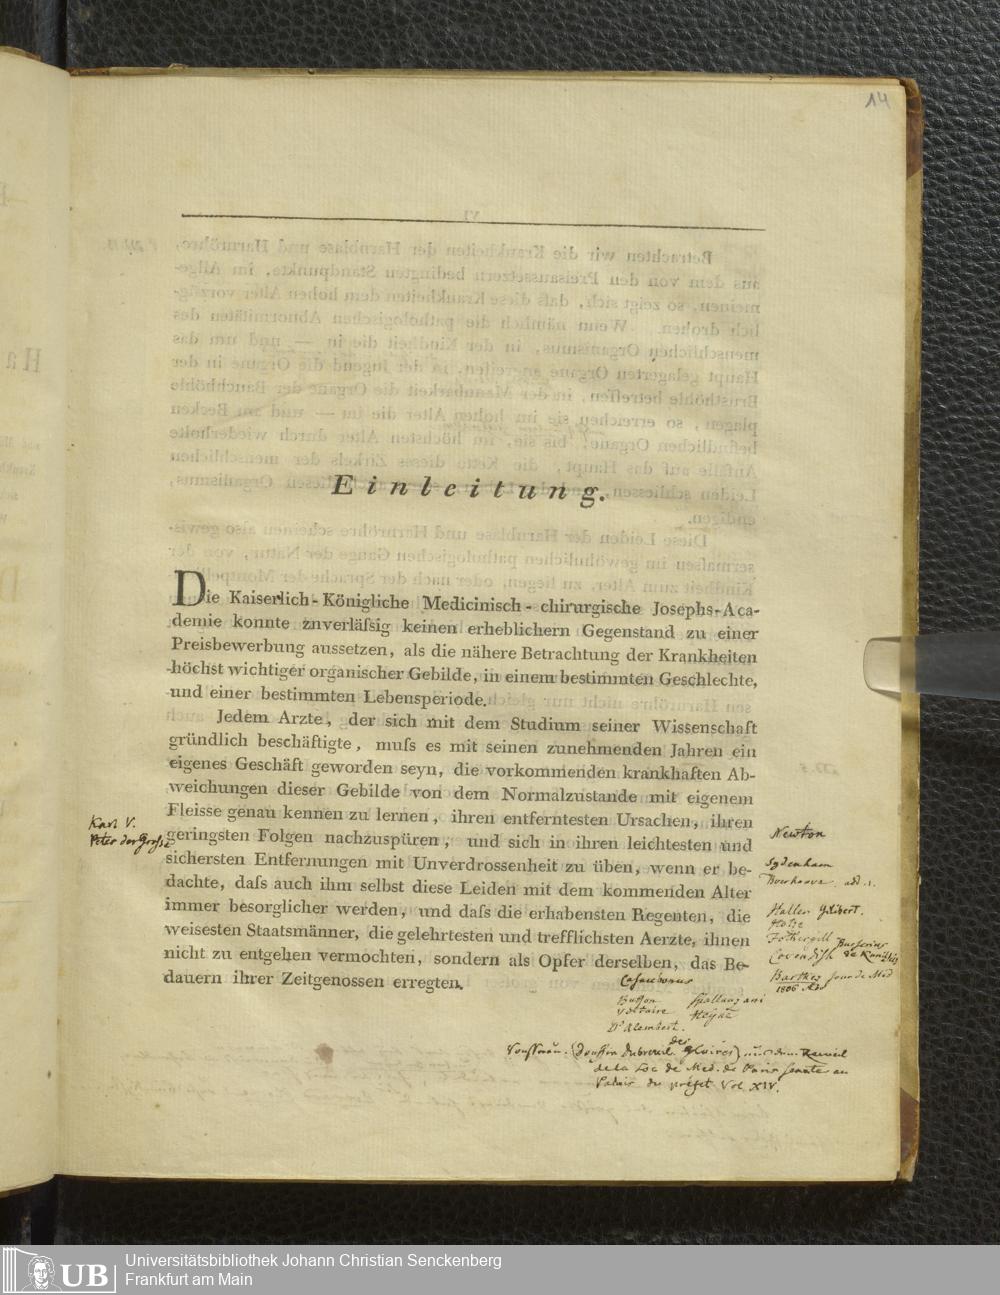 14
Einleitung.
Die Kaiserlich-Königliche Medicinisch-chirurgische Josephs-Aca-
demie konnte znverläſsig keinen erheblichern Gegenstand zu einer
Preisbewerbung aussetzen, als die nähere Betrachtung der Krankheiten
höchst wichtiger organischer Gebilde, in einem bestimmten Geschlechte,
und einer bestimmten Lebensperiode.
Jedem Arzte, der sich mit dem Studium seiner Wissenschaft
gründlich beschäftigte, muſs es mit seinen zunehmenden Jahren ein
eigenes Geschäft geworden seyn, die vorkommenden krankhaften Ab-
weichungen dieser Gebilde von dem Normalzustande mit eigenem
Fleisse genau kennen zu lernen, ihren entferntesten Ursachen, ihren
geringsten Folgen nachzuspüren, und sich in ihren leichtesten und
sichersten Entfernungen mit Unverdrossenheit zu üben, wenn er be-
dachte, daſs auch ihm selbst diese Leiden mit dem kommenden Alter
immer besorglicher werden, und daſs die erhabensten Regenten, die
weisesten Staatsmänner, die gelehrtesten und trefflichsten Aerzte, ihnen
nicht zu entgehen vermochten, sondern als Opfer derselben, das Be-
dauern ihrer Zeitgenossen erregten.
Karl V.
Peter der Grosse
Newton
Sydenham
Boerhaave
Haller
Fothergill
Cavendish
Barthez
1806
Casaubonus
Buffon Spallanzani
Voltaire Heyne
D'Alembert.
de la Soc de Med. de Paris
Vol XIV.
Universitätsbibliothek Johann Christian Senckenberg
Frankfurt am Main
UB